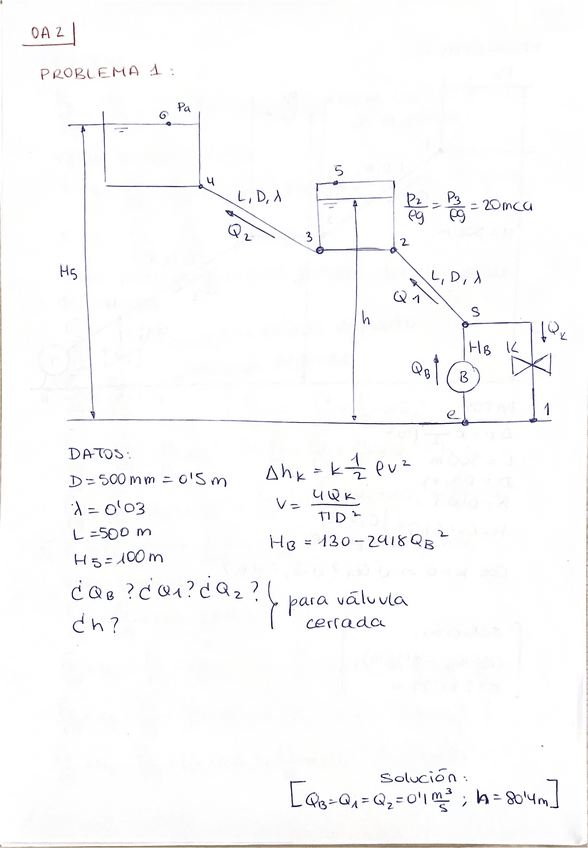 OA2
PROBLEMA 1:
6 Pa
4
L, D, λ
Q2
5
P2/ρg = P3/ρg = 20mca
3
2
L, D, λ
Q1
S
H5
h
HB K
QK
QB
B
e
1
DATOS:
D = 500mm = 0'5 m
λ = 0'03
L = 500 m
H5 = 100m
ΔhK = K 1/2 ρv²
V = 4QK/ΠD²
HB = 130 - 2918QB²
¿QB? ¿Q1? ¿Q2?
¿h?
para válvula
cerrada
Solución:
[QB = Q1 = Q2 = 0'1 m³/s ; h = 80'4m]